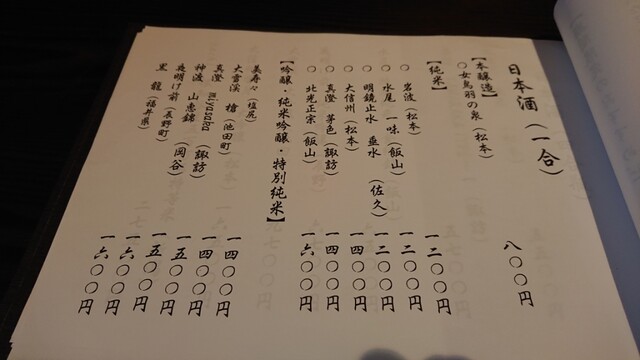 日本酒(一合)
【本醸造】
○女鳥羽の泉(松本) 八〇〇円
【純米】
○岩波(松本) 一二〇〇円
○水尾 一味(飯山) 一二〇〇円
○明鏡止水 垂水(佐久) 一二〇〇円
○大信州(松本) 一四〇〇円
○真澄 茅色(諏訪) 一四〇〇円
○北光正宗(飯山) 一六〇〇円
【吟醸・純米吟醸・特別純米】
美寿々(塩尻) 一四〇〇円
大雪渓 檜(池田町) 一四〇〇円
真澄 miyasaka(諏訪) 一五〇〇円
神渡 山恵錦(岡谷) 一五〇〇円
夜明け前(辰野町) 一六〇〇円
黒龍(福井県) 一六〇〇円